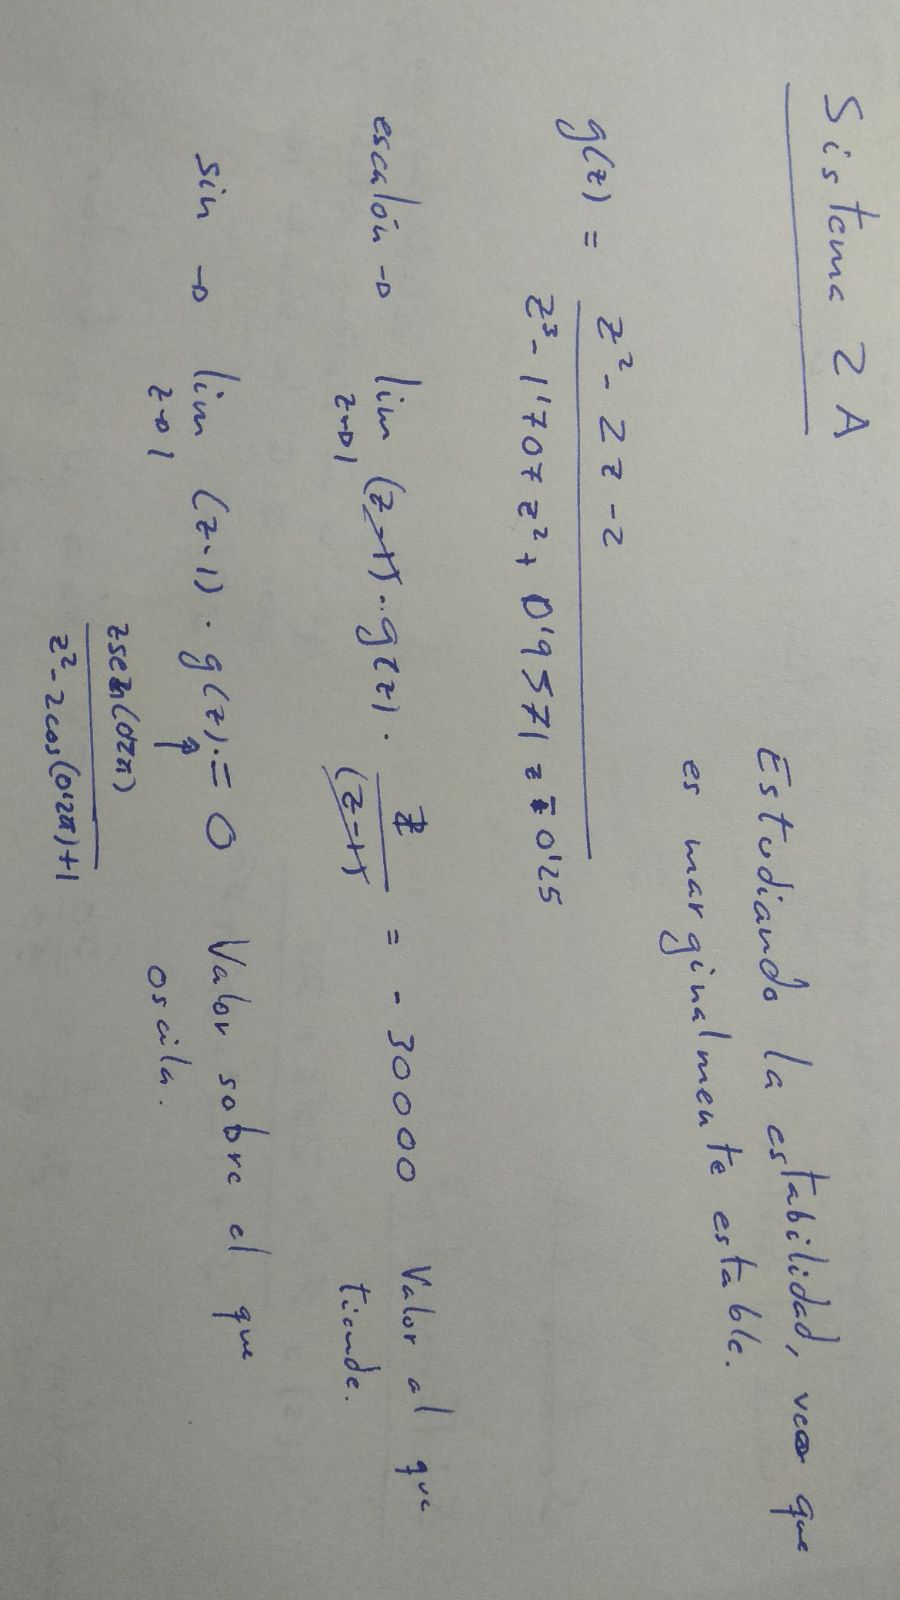 Sistema 2 A
Estudiando la estabilidad, veo que
es marginalmente estable.
g(z) = z² - 2z - 2 / z³ - 1'707 z² + 0'9571 z - 0'25
escalón → lim z→1 (z-1) · g(z) · z / (z-1) = - 30000 Valor al que
tiende.
sin → lim z→1 (z-1) · g(z) · = 0 Valor sobre el que
oscila.
↑
z sen(0'2π)
z² - 2cos(0'2π) + 1